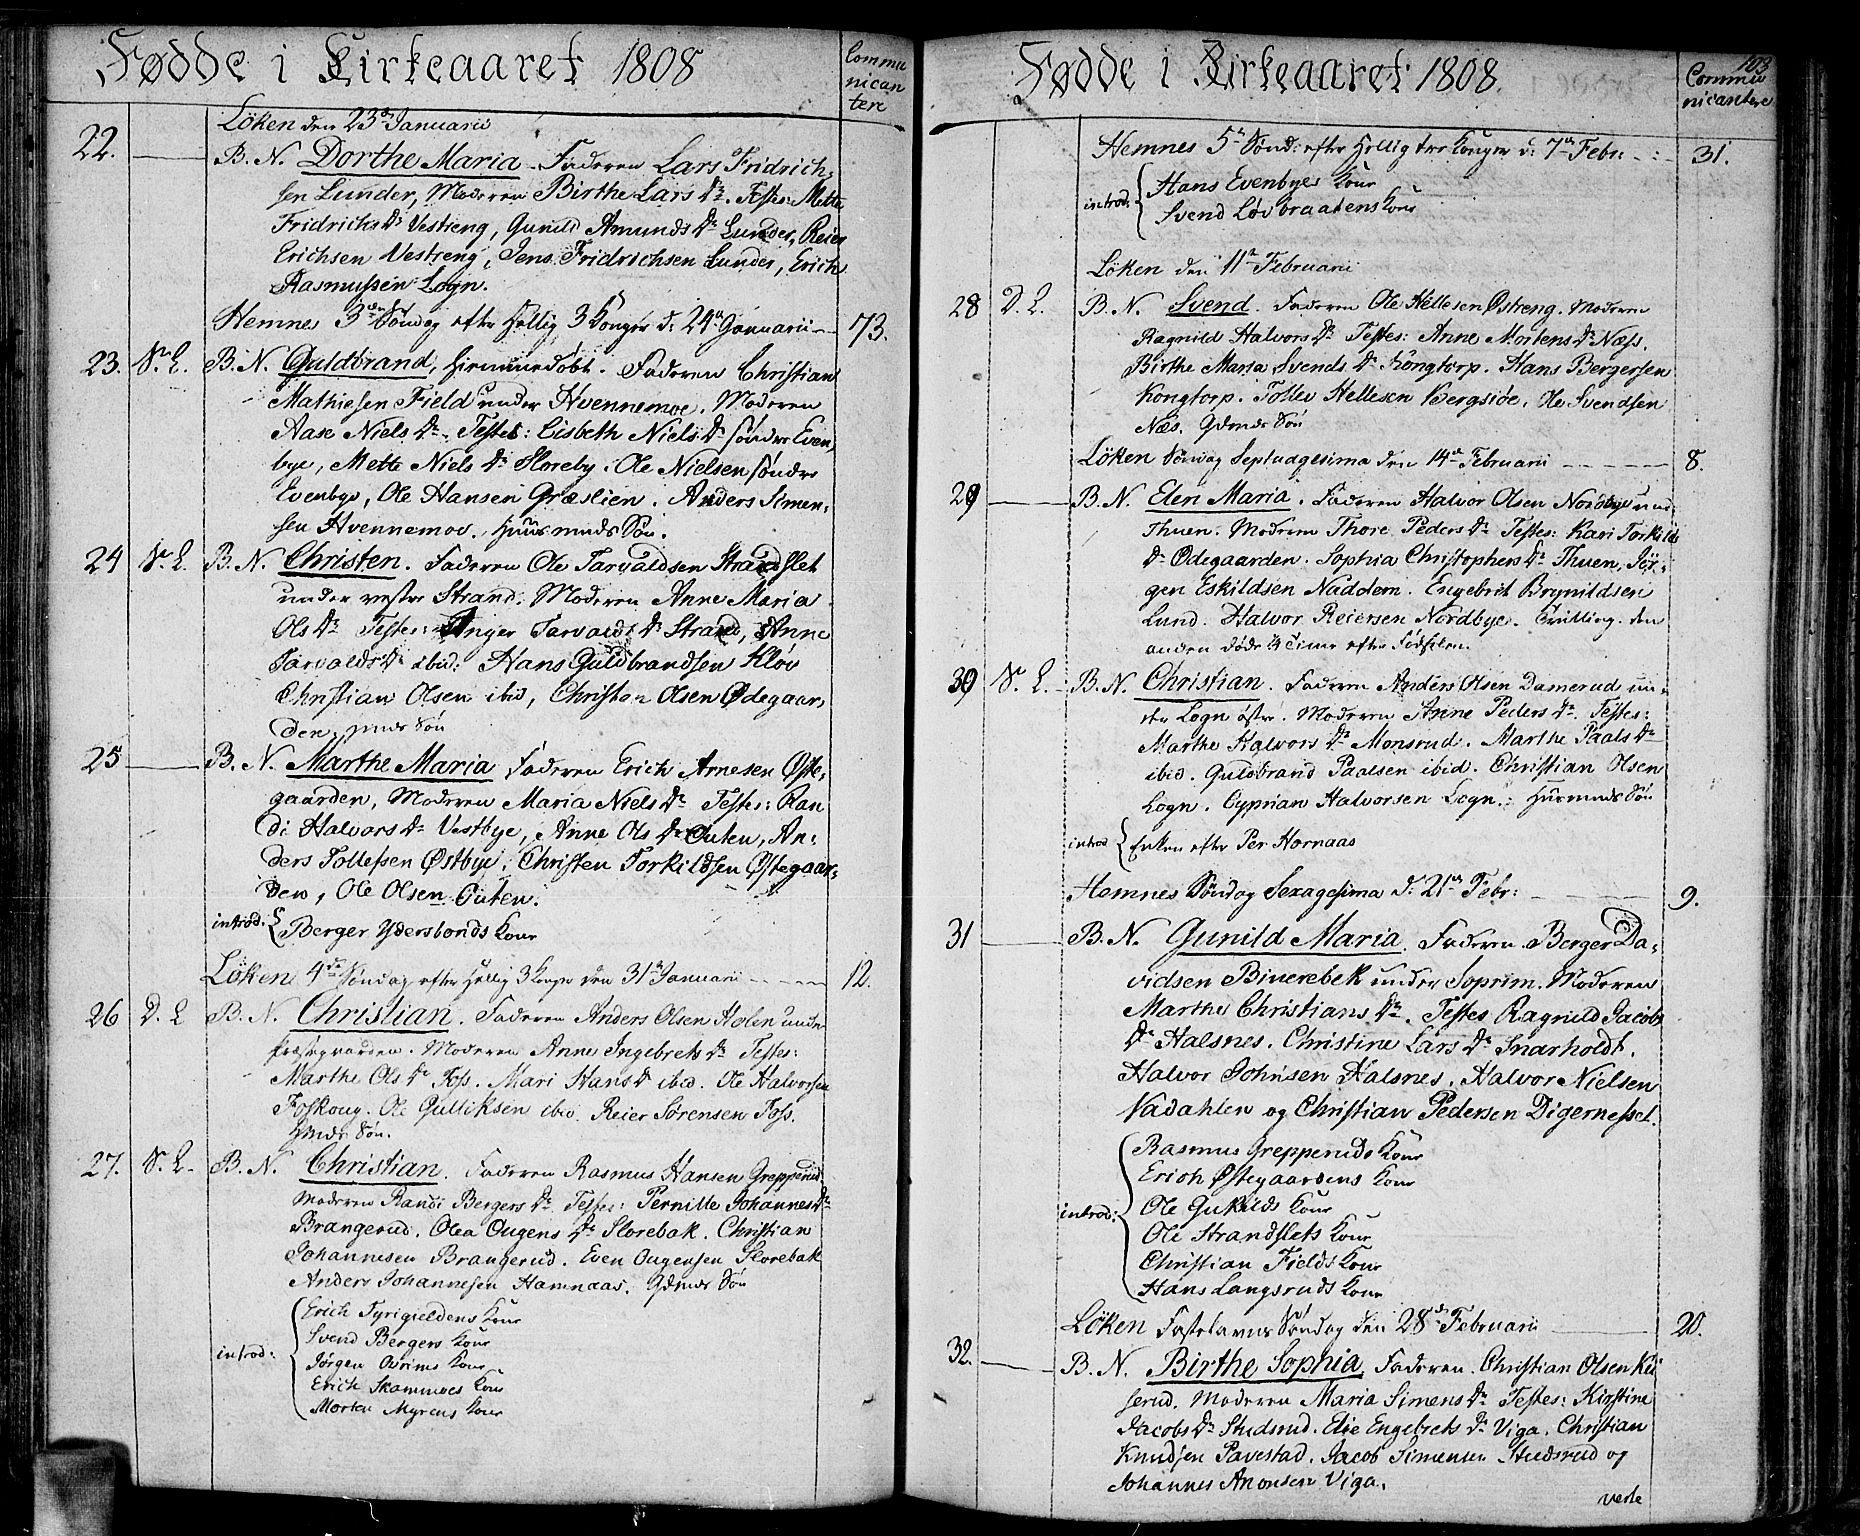 Fødde i Kirkeaaret 1808
Commu
nican
tere
Löken den 23de Januarii
22. B. N. Dorthe Maria. Faderen Lars Fridrich-
sen Lunder, Moderen Birthe Lars Dr. Testes: Mette
Fridrichs Dr Vestreng, Gunild Amunds Dr Lunder, Reier
Erichsen Vestreng, Jens Fridrichsen Lunder, Erich
Rasmussen Logn.
Hemnes 3de Söndag efter Hellig 3 Konger d: 24de Januarii 73.
23. S. L. B. N. Guldbrand, hiemmedøbt. Faderen Christian
Mathiesen Field under Hvennemoe. Moderen
Aase Niels Dr. Testes: Lisbeth Niels Dr søndre Even-
bye, Mette Niels Dr Floreby. Ole Nielsen søndre
Evenbye, Ole Hansen Græslien. Anders Simen-
sen Hvennemoe. Huusmands Søn.
24 S. L. B. N. Christen. Faderen Ole Tarvaldsen Strandslet
under vestre Strand. Moderen Anne Maria
Ols Dr Testes: Inger Tarvalds Dr Strand, Anne
Tarvalds Dr ibid: Hans Guldbrandsen Kløv
Christian Olsen ibid, Christen Olsen Ødegaar-
den. Søn
25 B. N. Marthe Maria Faderen Erich Arnesen Øste-
gaarden, Moderen Maria Niels Dr Testes: Ran
di Halvors Dr Vestbye, Anne Ols Dr Outen, An-
ders Tollefsen Østbye, Christen Torkildsen Østegaar-
den, Ole Olsen Outen.
introd: { Berger Ydersbonds Kone
Löken 4de Søndag efter Hellig 3 Konger den 31te Januarii 12.
26 D. L B. N. Christian. Faderen Anders Olsen Holen under
Præstegaarden. Moderen Anne Ingebrets Dr Testes:
Marthe Ols Dr Foss. Mari Hans Dr ibid. Ole Halvorsen
Foskoug. Ole Gulliksen ibid. Reier Sørensen Foss.
Søn.
27. S. L. B. N. Christian. Faderen Rasmus Hansen Grepperud
Moderen Randi Bergers Dr. Testes: Pernille Johannes Dr
Brangerud. Olea Ougens Dr Slorebak. Christian
Johannesen Brangerud. Even Ougensen Slorebak
Anders Johannesen Hamnaas. Gdmds Søn
introd: { Erich Tyrigieldens Kone
Svend Bergers Kone
Jørgen Kone
Erich Skammoes Kone
Morten Myrens Kone
Fødde i Kirkeaaret 1808.
103
Commu
nicantere
Hemnes 5te Sönd: efter Hellig tre Konger d: 7de Febr. 31.
introd: { Hans Evenbyes Kone
Svend Løvbraatens Kone
Löken den 11te Februarii
28 D. L. B. N. Svend. Faderen Ole Hellesen Østreng. Moderen
Ragnild Halvors Dr Testes: Anne Mortens Dr Næss.
Birthe Maria Svends Dr Kongtorp. Hans Bergersen
Kongtorp. Tollev Hellesen Bergside. Ole Svendsen
Næs. Gdmds Søn
Löken Søndag Septuagesima den 14de Februarii 8.
29 B. N. Elen Maria. Faderen Halvor Olsen Nordbye und.
Thuen. Moderen Thore Peders Dr Testes: Kari Torkilds
Dr Ødegaarden. Sophia Christophers Dr Thuen, Jør-
gen Eskildsen Naddem. Engebret Brynildsen
Lund. Halvor Reiersen Nordbye. Tvilling. den
anden døde ¼ Time efter Fødselen.
30 S. L. B. N. Christian. Faderen Anders Olsen Damerud un-
der Logn østre. Moderen Anne Peders Dr. Testes:
Marthe Halvors Dr Monsrud. Marthe Paals Dr
ibid. Guldbrand Paalsen ibid. Christian Olsen
Logn. Cyprian Halvorsen Logn. Husmands Søn
introd { Enken efter Per Hornaas
Hemnes Söndag Sexagesima d: 21de Febr: 9.
31 B. N. Gunild Maria. Faderen Berger Da-
vidsen Biverebek under Soprim. Moderen
Marthe Christians Dr. Testes Ragnild Jacobs
Dr Halsnes. Christine Lars Dr Snarholdt.
Halvor Johnsen Halsnes. Halvor Nielsen
Nadahlen og Christian Pedersen Digernesset.
introd: { Rasmus Grepperuds Kone
Erich Østegaardens Kone
Ole Gukilds Kone
Ole Strandslets Kone
Christian Fields Kone
Hans Langsruds Kone
Löken Fastelavns Söndag den 28de Februarii 20.
32. B. N. Birthe Sophia. Faderen Christian Olsen Kil
serud. Moderen Maria Simens Dr Testes: Kirstine
Jacobs Dr Studsrud. Elie Engebrets Dr Viga. Christian
Knudsen Pavestad. Jacob Simensen Studsrud og
Johannes Amonsen Viga.
verte